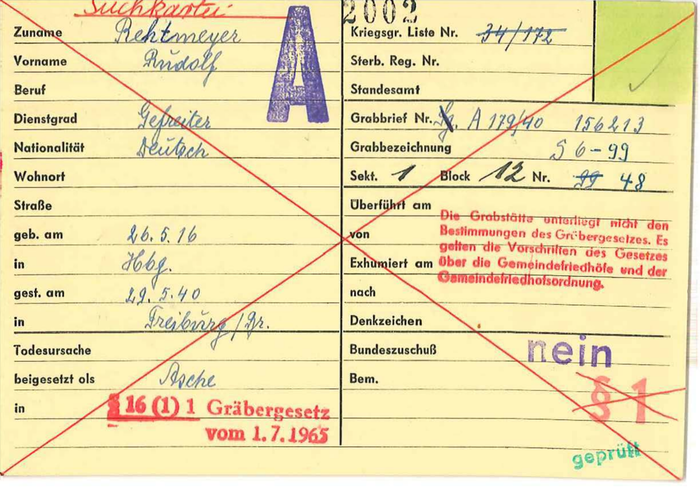 Suchkartei
A
2002
Zuname Rehtmeyer
Vorname Rudolf
Beruf
Dienstgrad Gefreiter
Nationalität Deutsch
Wohnort
Straße
geb. am 26.5.16
in Hbg.
gest. am 29.5.40
in Freiburg/Br.
Todesursache
beigesetzt als Asche
in
§ 16 (1) 1 Gräbergesetz
vom 1.7.1965
Kriegsgr. Liste Nr. 34/172
Sterb. Reg. Nr.
Standesamt
Grabbrief Nr. A 179/40 156213
Grabbezeichnung S 6-99
Sekt. 1 Block 12 Nr. 99 48
Überführt am
von
Exhumiert am
nach
Die Grabstätte unterliegt nicht den
Bestimmungen des Gräbergesetzes. Es
gelten die Vorschriften des Gesetzes
über die Gemeindefriedhöfe und der
Gemeindefriedhofsordnung.
Denkzeichen
Bundeszuschuß nein
Bem.
§ 1
geprüft